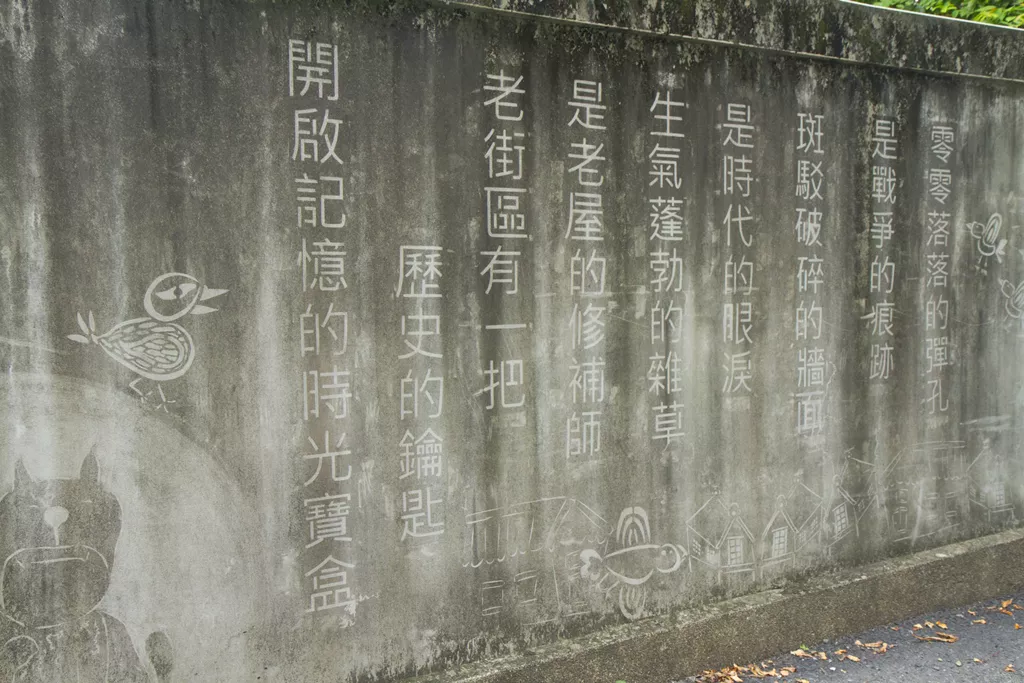 零零落落的彈孔
是戰爭的痕跡
斑駁破碎的牆面
是時代的眼淚
生氣蓬勃的雜草
是老屋的修補師
老街區有一把
歷史的鑰匙
開啟記憶的時光寶盒